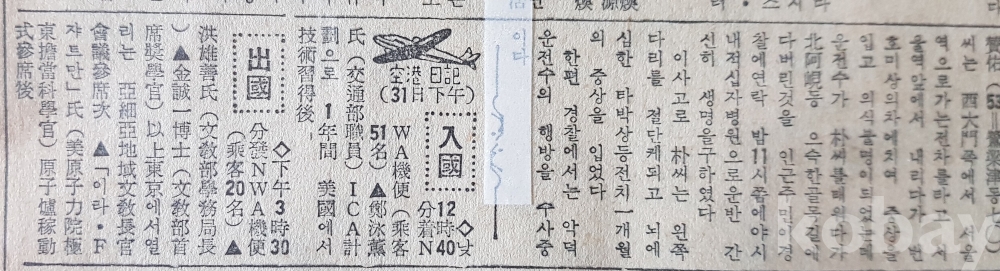 씨는 西大門쪽에서 서울
역으로가는전차를타고서
울역앞에서 내리다가 번
호미상의차에치여 중상을
입고 의식불명이되었는데
운전수가 朴씨를태워다가
北阿峴동 으슥한골목길에
다버린것을 인근주민이경
찰에연락 밤11시쯤에야시
내적십자병원으로운반 간
선히 생명을구하였다
이사고로 朴씨는 왼쪽
다리를 절단케되고 뇌에
심한 타박상등전치 一개월
의 중상을 입었다
한편 경찰에서는 악덕
운전수의 행방을 수사중
이다
空港日記
(31日下午)
入國
◇낮
12時40
分着N
WA機便(乘客
51名)▲鄭泳薰
氏(交通部職員)ICA計
劃으로 1年間 美國에서
技術習得後
出國
◇下午3時30
分發NWA機便
(乘客20名)▲
洪雄善氏(文敎部學務局長
)▲金誠一博士(文敎部首
席奬學官)以上東京에서열
리는 亞細亞地域文敎長官
會議參席次 ▲「이라・F
쟈트만」氏(美原子力院極
東擔當科學官)原子爐稼動
式參席後